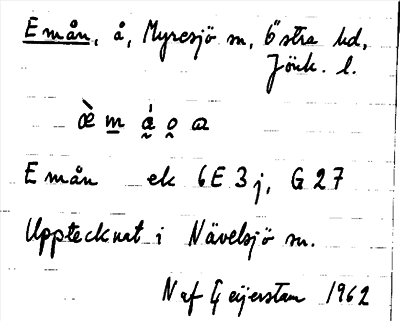 Emån, å, Myresjö sn, Östra hd,
Jönk. l.
Emån ek 6E3j, G27
Upptecknat i Nävelsjö sn.
N af Geijerstam 1962